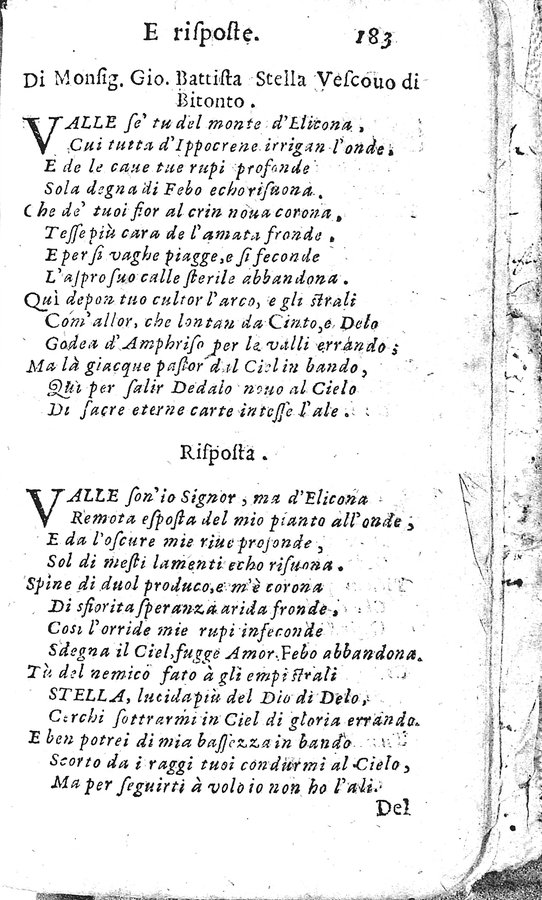 E riſpoſte. 183
Di Monſig. Gio. Battiſta Stella Veſcouo di
Bitonto.
VALLE ſe' tu del monte d'Elicona,
Cui tutta d'Ippocrene irrigan l'onde;
E de le caue tue rupi profonde
Sola degna di Febo echo riſuona.
Che de' tuoi fior al crin noua corona,
Teſſe più cara de l'amata fronde.
E per ſi vaghe piagge, e ſi feconde
L'aſpro ſuo calle ſterile abbandona.
Quì depon tuo cultor l'arco, e gli ſtrali
Com'allor, che lontan da Cinto, e Delo
Godea d'Amphriſo per le valli errando;
Ma là giacque paſtor dal Ciel in bando,
Quì per ſalir Dedalo nouo al Cielo
Di ſacre eterne carte inteſſe l'ale.
Riſpoſta.
VALLE ſon'io Signor, ma d'Elicona
Remota eſpoſta del mio pianto all'onde,
E da l'oſcure mie riue profonde,
Sol di meſti lamenti echo riſuona.
Spine di duol produco, e m'è corona
Di sfiorita ſperanza arida fronde,
Cosi l'orride mie rupi infeconde
Sdegna il Ciel, fugge Amor, Febo abbandona.
Tù del nemico fato à gli empi ſtrali
STELLA, lucida più del Dio di Delo,
Cerchi ſottrarmi in Ciel di gloria errando.
E ben potrei di mia baſſezza in bando
Scorto da i raggi tuoi condurmi al Cielo,
Ma per ſeguirti à volo io non ho l'ali.
Del